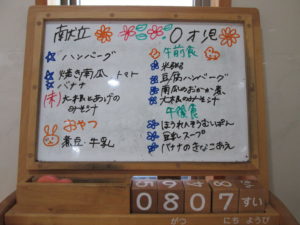 献立 0才児
ハンバーグ
焼き南瓜、トマト
バナナ
大根とあげの
みそ汁
おやつ
煮豆・牛乳
午前食
豆腐ハンバーグ
南瓜のおかか煮
大根のみそ汁
午後食
ほうれんそうむしぱん
豆乳スープ
バナナのきなこあえ
0 8 0 7 すい
がつ にち ようび